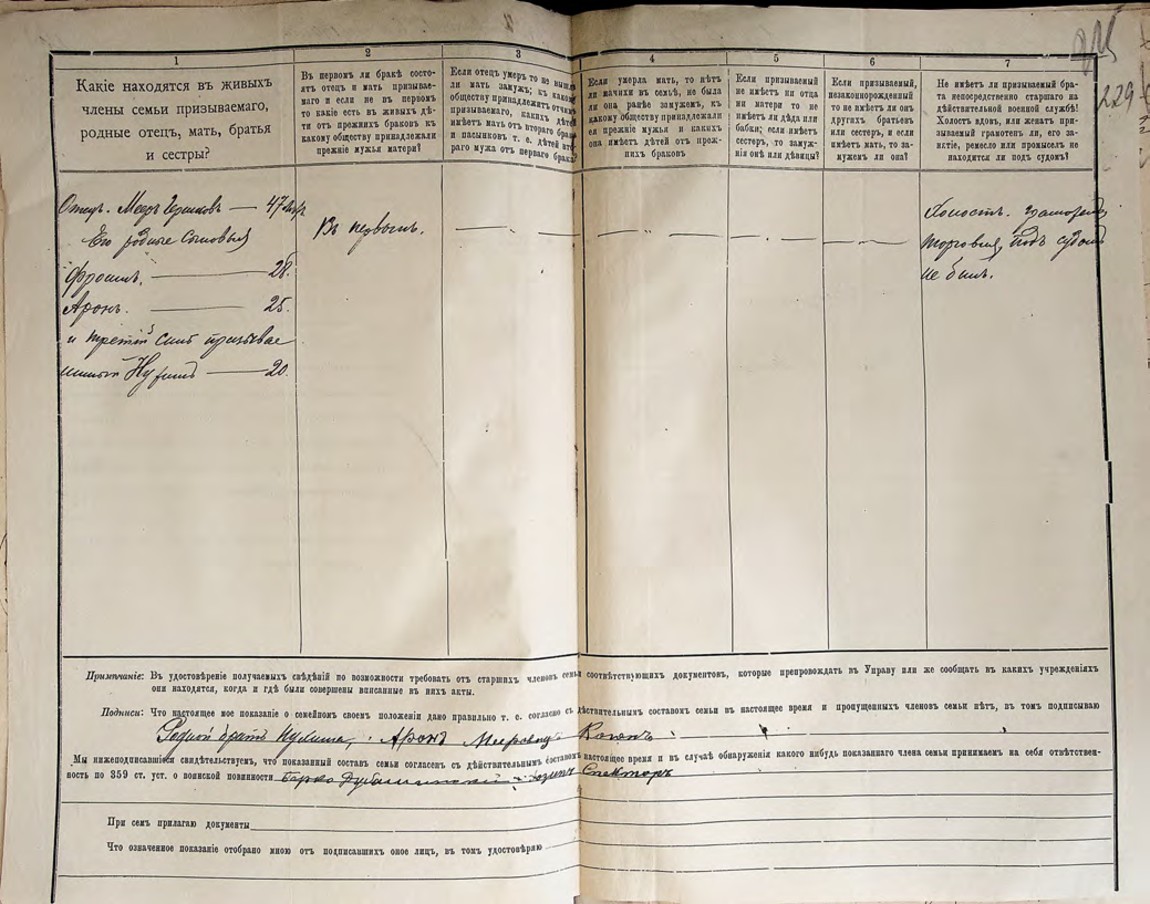 229
1
Какіе находятся въ живыхъ
члены семьи призываемаго,
родные отецъ, мать, братья
и сестры?
2
Въ первомъ ли бракѣ состо-
ятъ отецъ и мать призывае-
маго и если не въ первомъ
то какіе есть въ живыхъ дѣ-
ти отъ прежнихъ браковъ къ
какому обществу принадлежали
прежніе мужья матери?
3
Если отецъ умеръ то не вышла
ли мать замужъ; къ какому
обществу принадлежитъ отчимъ
призываемаго, какихъ дѣтей
имѣетъ мать отъ втораго брака
и пасынковъ т. е. дѣтей вто-
раго мужа отъ перваго брака?
4
Если умерла мать, то нѣтъ
ли мачихи въ семьѣ, не была
ли она ранѣе замужемъ, къ
какому обществу принадлежали
ея прежніе мужья и какихъ
она имѣетъ дѣтей отъ преж-
нихъ браковъ
5
Если призываемый
не имѣетъ ни отца
ни матери то не
имѣетъ ли дѣда или
бабки; если имѣетъ
сестеръ, то замуж-
нія онѣ или дѣвицы?
6
Если призываемый,
незаконнорожденный
то не имѣетъ ли онъ
другихъ братьевъ
или сестеръ, и если
имѣетъ мать, то за-
мужемъ ли она?
7
Не имѣетъ ли призываемый бра-
та непосредственно старшаго на
дѣйствительной военной службѣ!
Холостъ вдовъ, или женатъ при-
зываемый грамотенъ ли, его за-
нятіе, ремесло или промыселъ не
находится ли подъ судомъ?
Отецъ. Мееръ Гершковъ — 47
Его родные Сыновья
Фроимъ, — 28.
Аронъ. — 25.
и третій сынъ призывае
мый Нухимъ — 20.
Въ первомъ.
Холостъ. грамотенъ
торговля, подъ судомъ
не былъ.
Примѣчаніе: Въ удостовѣреніе получаемыхъ свѣдѣній по возможности требовать отъ старшихъ членовъ семьи соотвѣтствующихъ документовъ, которые препровождать въ Управу или же сообщать въ какихъ учрежденіяхъ
они находятся, когда и гдѣ были совершены вписанные въ нихъ акты.
Подписи: Что настоящее мое показаніе о семейномъ своемъ положеніи дано правильно т. е. согласно съ дѣйствительнымъ составомъ семьи въ настоящее время и пропущенныхъ членовъ семьи нѣтъ, въ томъ подписываю
Родной братъ Нухима, Аронъ Меировичъ Коганъ
Мы нижеподписавшіеся свидѣтельствуемъ, что показанный составъ семьи согласенъ съ дѣйствительнымъ составомъ настоящее время и въ случаѣ обнаруженія какого нибудь показаннаго члена семьи принимаемъ на себя отвѣтствен-
ность по 359 ст. уст. о воинской повинности Берко Спекторъ
При семъ прилагаю документы
Что означенное показаніе отобрано мною отъ подписавшихъ оное лицъ, въ томъ удостовѣряю